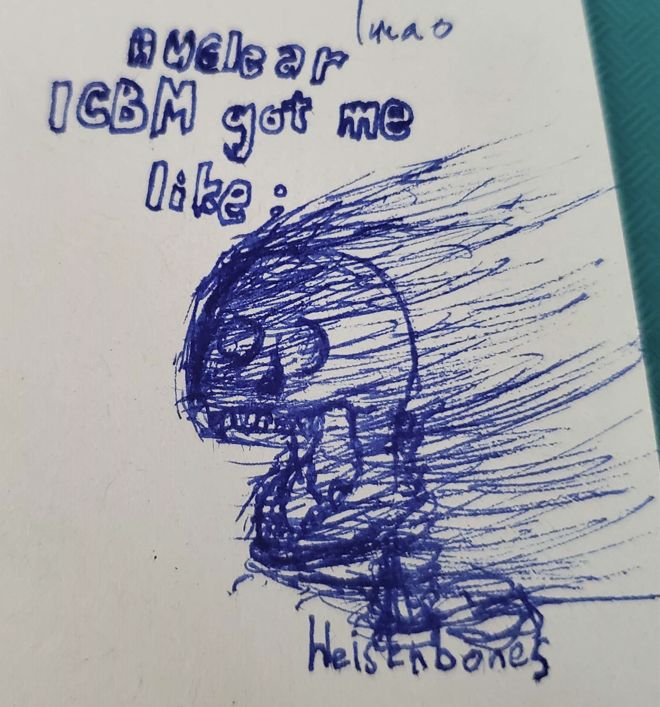 lmao
nuclear
ICBM got me
like:
Heisenbones